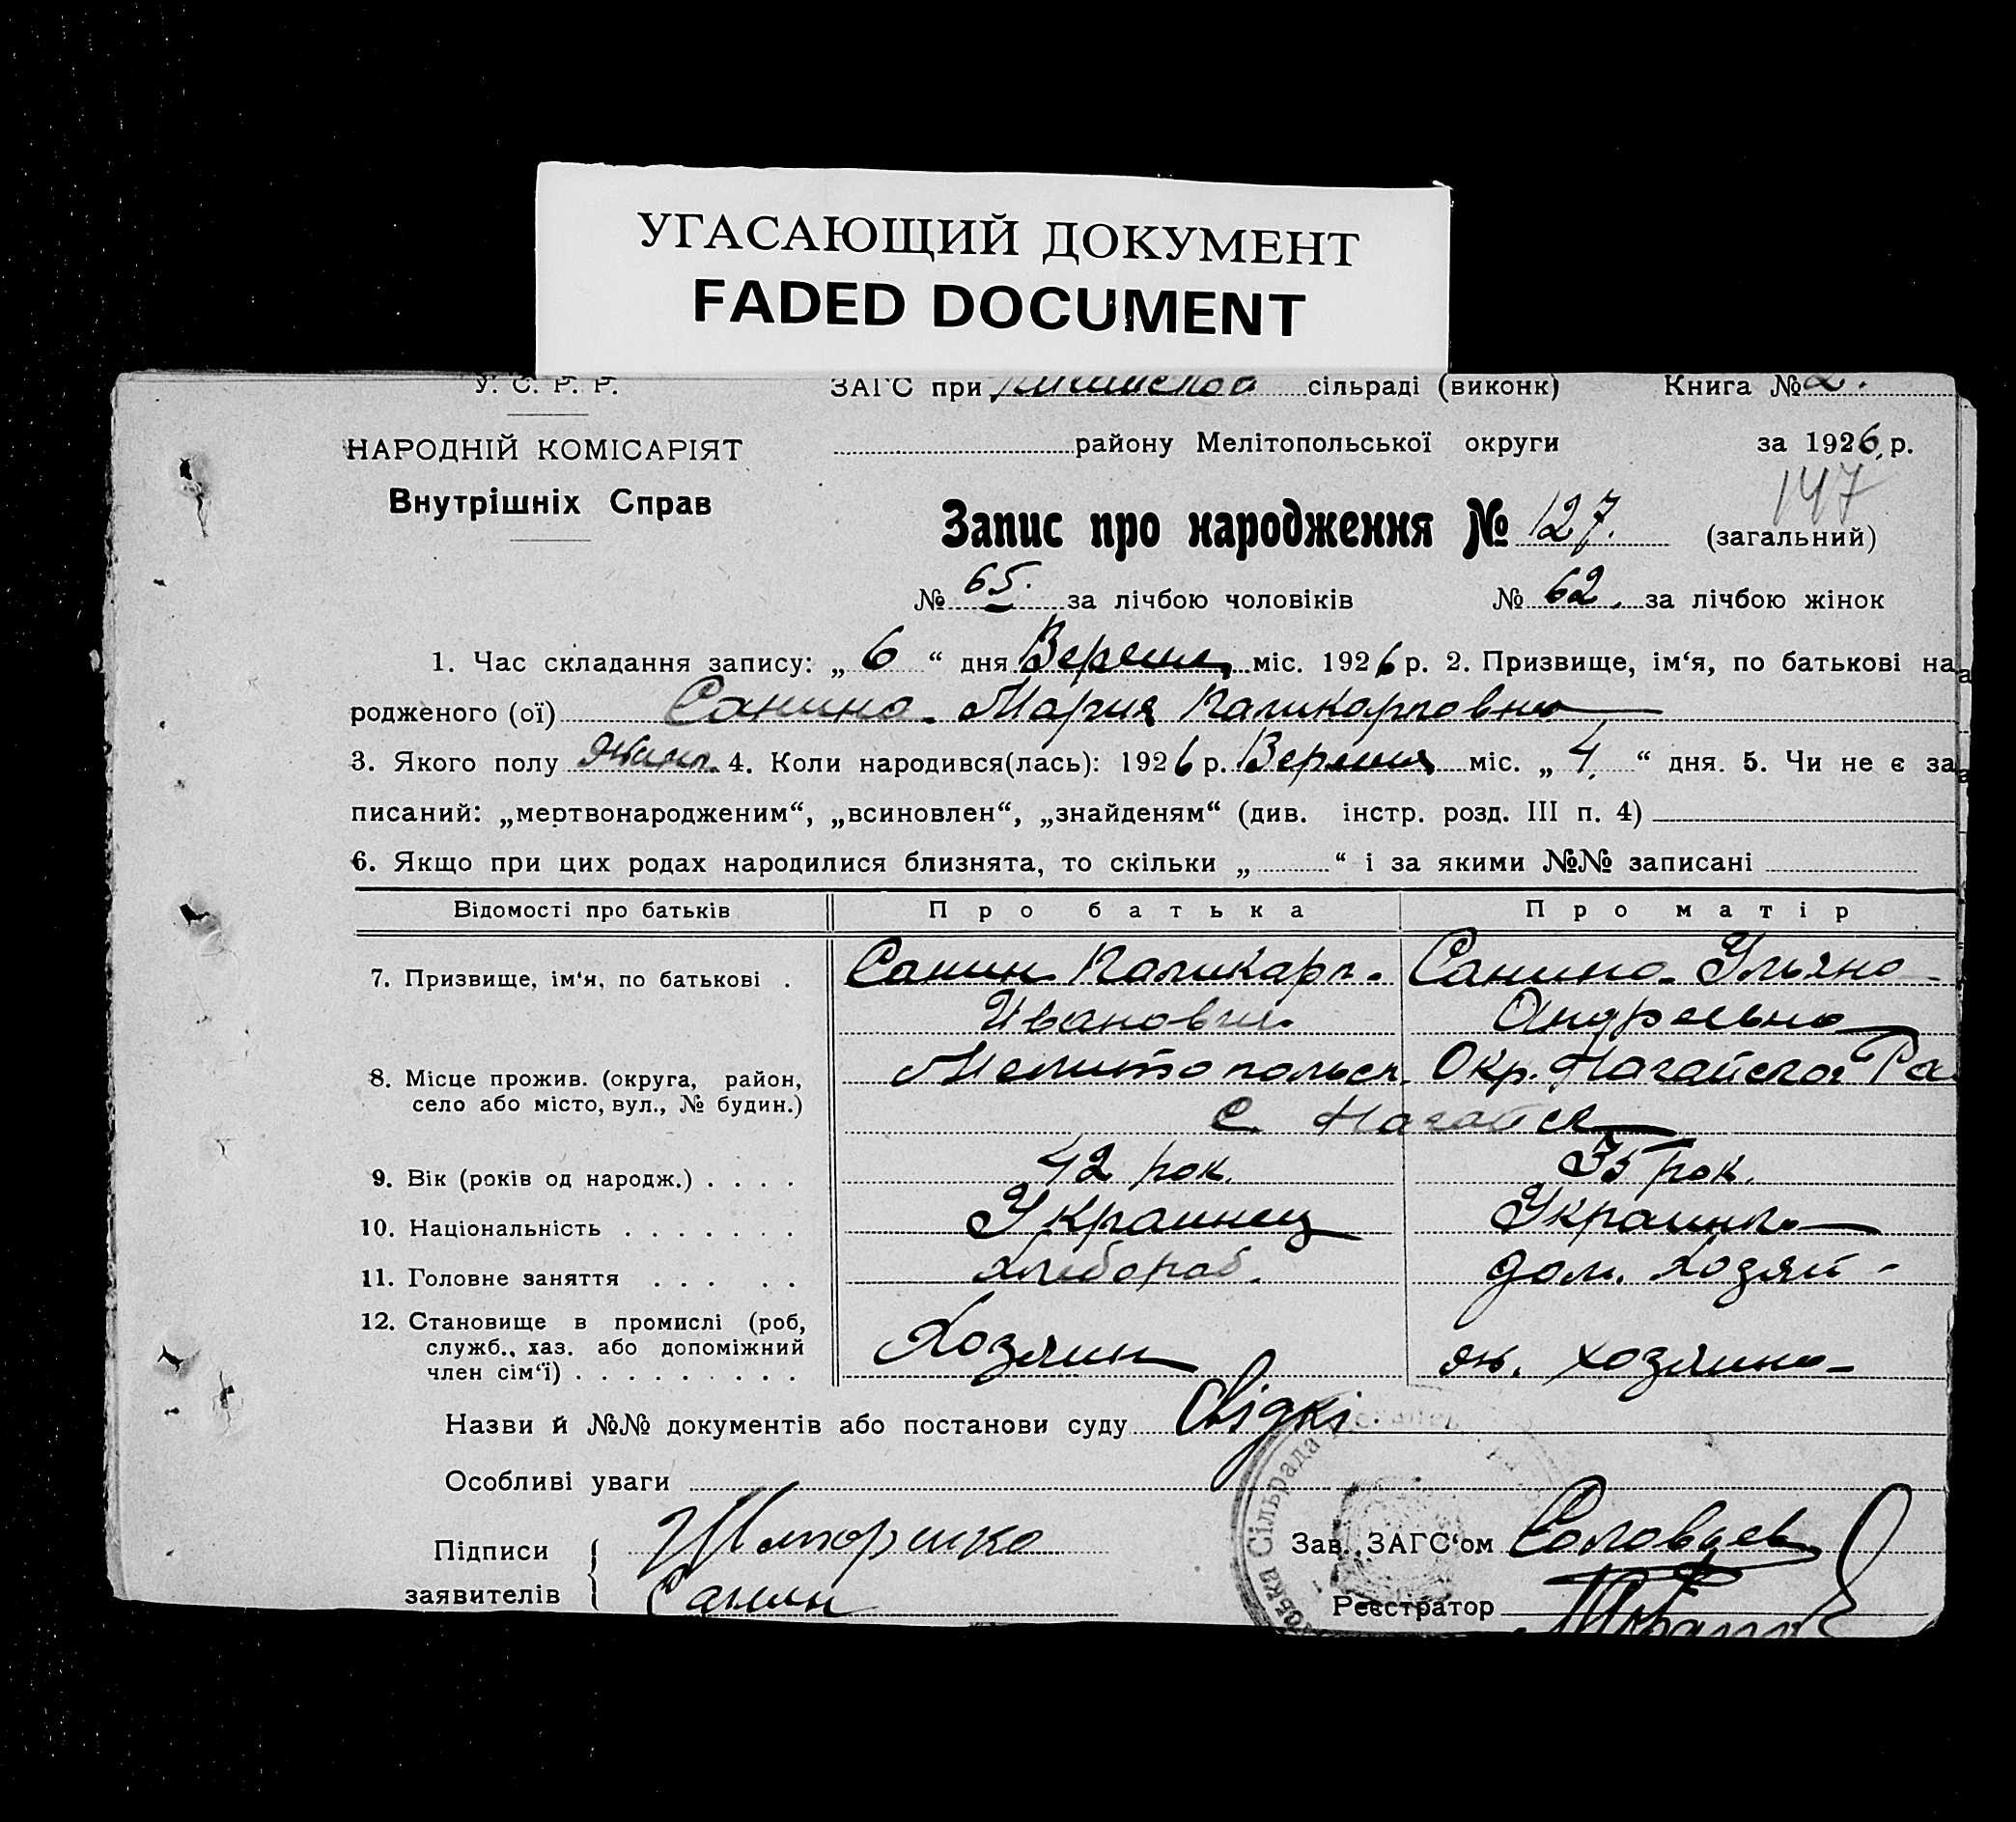 УГАСАЮЩИЙ ДОКУМЕНТ
FADED DOCUMENT
У. С. Р. Р. ЗАГС при сільраді (виконк) Книга № 2.
НАРОДНІЙ КОМІСАРІЯТ району Мелітопольської округи за 1926 р.
Внутрішніх Справ 147
Запис про народження № 127. (загальний)
№ 65. за лічбою чоловіків № 62. за лічбою жінок
1. Час складання запису: „ 6 “ дня Вересня міс. 1926 р. 2. Призвище, ім‘я, по батькові на
родженого (ої) Санина Мария Паликарповна
3. Якого полу 4. Коли народився(лась): 1926 р. Вересня міс. „ 4. “ дня. 5. Чи не є за
писаний: „мертвонародженим“, „всиновлен“, „знайденям“ (див. інстр. розд. III п. 4)
6. Якщо при цих родах народилися близнята, то скільки „ “ і за якими №№ записані
Відомості про батьків Про батька Про матір
7. Призвище, ім‘я, по батькові . Санин Паликарп. Санина Ульяна
Иванович Андреевна
8. Місце прожив. (округа, район, Мелитопольск. Окр. Нагайског Ра
село або місто, вул., № будин.) с. Нагайск
9. Вік (років од народж.) . . . . 42 рок. 35 рок.
10. Національність . . . . . . . Украинец Украинка
11. Головне заняття . . . . . Хлебораб. дом. хозяй-
12. Становище в промислі (роб,
служб., хаз. або допоміжний Хозяин эк. хозяина
член сім‘ї) . . . . . . . . .
Назви й №№ документів або постанови суду Свідкі
Особливі уваги
Підписи Зав. ЗАГС‘ом Соловьев
заявителів Санин Реєстратор
Сільрада